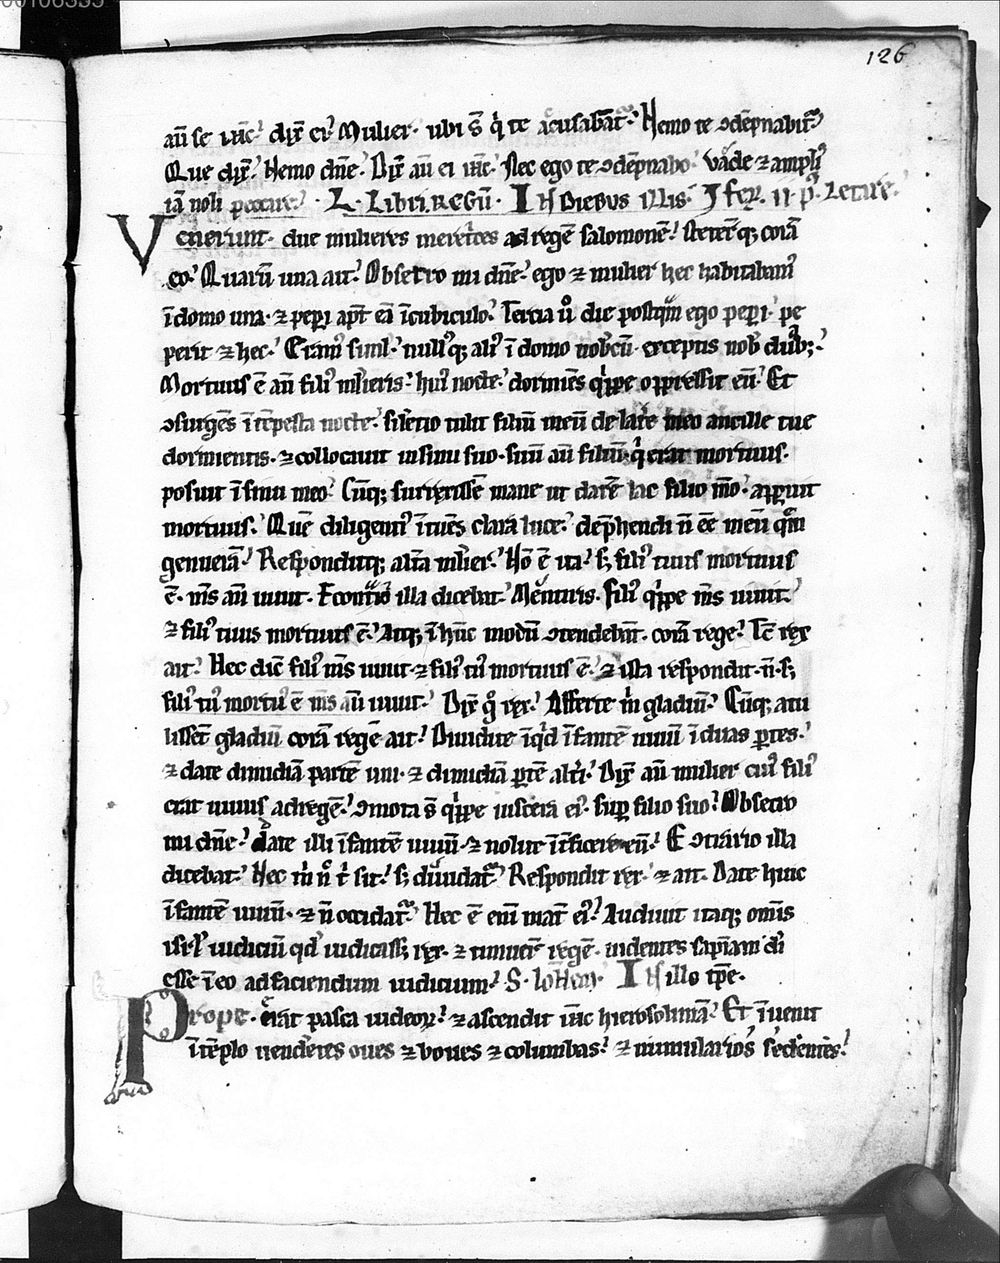 126
aū se iħc? dix̄ ei? Mulier· ubi s̄ q̇ te accusabāt᷑? Nemo te ꝯdēpnabit᷑?
Que dix̄? Nemo dn̄e? Dix̄ aū ei iħc? Nec ego te ꝯdēpnabo? Vade ⁊ ampliꝰ
iā noli peccare? · L· Libri Regū· IN Diebus illis· J fer̄· ii· p̄· Letare·
Venerunt· due mulieres meretˀces ad regē salomonē? steterˀtq; corā
eo? Quarū una ait? Obsecro mi dn̄e? ego ⁊ mulier hec habitabamꝰ
ī domo una· ⁊ peꝑi apᵭ eā ī cubiculo? Tercia ū die postq̄m ego peꝑi· pe
perit ⁊ hec? Eramꝰ simł? nullꝰq; aliꝰ ī domo nobcū exceptis nob duab;?
Mortuus ē aū filiꝰ mlˀieris? hac nocte? dormiēs q̇ppe oppressit eū? Et
ꝯsurgēs ītēpesta nocte? silētio tulit filiū meū de latˀe meo ancille tue
dormientis· ⁊ collocavit in sinu suo· suū aū filiū q̇ erat mortuus·
posuit ī sinu meo? Cūq; surrexissē mane ut darē lac filio mō· apparuit
mortuus? Quē diligentiꝰ ītuēs clara luce? dep̄hendi n̄ eē meū quē
genuerā? Responditq; altˀa mlˀier? Nō ē ita? s; filiꝰ tuus mortuus
ē· ms̄ aū vivit· Econtrˀio illa dicebat? Mentiris· filiꝰ q̇ppe ms̄ vivit?
⁊ filiꝰ tuus mortuus ē? Atq; ī hūc modū ꝯtendebāt· corā rege? Tc̄ rex
ait? Hec dic̄ filiꝰ ms̄ vivit ⁊ filiꝰ tuꝰ mortuus ē? ⁊ illa respondit· n̄· s;
filiꝰ tuꝰ mortuꝰ ē ms̄ aū vivit? Dix̄ g̊ rex? Afferte m̄ gladiū? Cūq; attu
lissēt gladiū corā rege ait? Dividite īqᵭ īfantē vivū ī duas ꝑtes?
⁊ date dimidiā partē uni· ⁊ dimidiā ꝑtē altˀi? Dix̄ aū mulier cuiꝰ filiꝰ
erat vivus ad regē? ꝯmota s̄ q̇ppe viscera eiꝰ· suꝑ filio suo? Obsecro
mi dn̄e? date illi īfantē vivū· ⁊ nolite ītˀficere eū? E ꝯtrario illa
dicebat? Nec m̄ n̄ t̄ sit? s; dividat᷑? Respondit rex? ⁊ ait· Date huic
īfantē vivū· ⁊ n̄ occidat᷑? Hec ē eni matˀ eiꝰ? Audivit itaq; omīs
isrł iudiciū qᵭ iudicass; rex· ⁊ timuerˀt regē· videntes sapīam dī
esse ī eo ad faciendum iudicium? S· Ioħem· IN illo tp̄e·
Prope· erat pasca iudeoꝝ? ⁊ ascendit iħc hierosolimā? Et īvenit
ī tēplo vendētes oves ⁊ boves ⁊ columbas? ⁊ numularios sedentes?